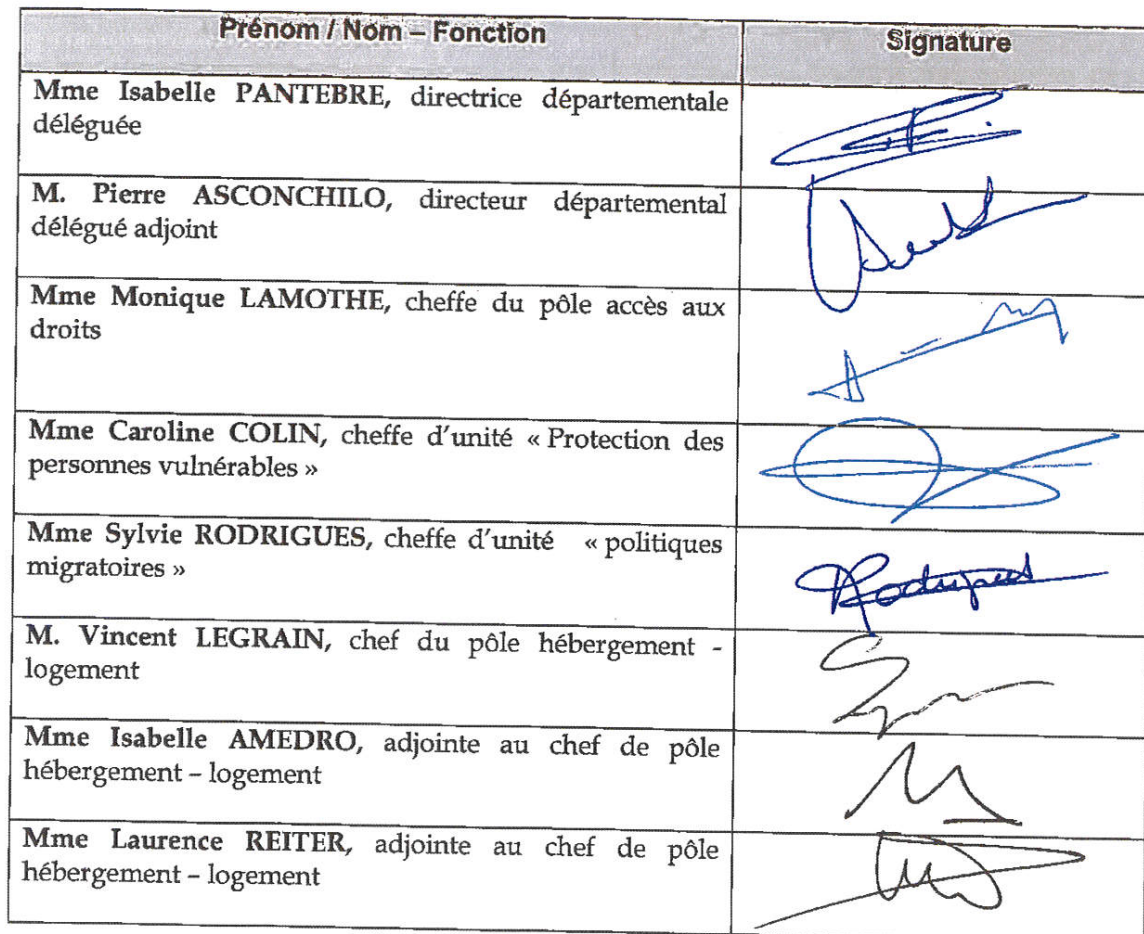 Prénom / Nom – Fonction
Signature
Mme Isabelle PANTEBRE, directrice départementale
déléguée
M. Pierre ASCONCHILO, directeur départemental
délégué adjoint
Mme Monique LAMOTHE, cheffe du pôle accès aux
droits
Mme Caroline COLIN, cheffe d'unité « Protection des
personnes vulnérables »
Mme Sylvie RODRIGUES, cheffe d'unité « politiques
migratoires »
Rodrigues
M. Vincent LEGRAIN, chef du pôle hébergement -
logement
Mme Isabelle AMEDRO, adjointe au chef de pôle
hébergement – logement
Mme Laurence REITER, adjointe au chef de pôle
hébergement – logement